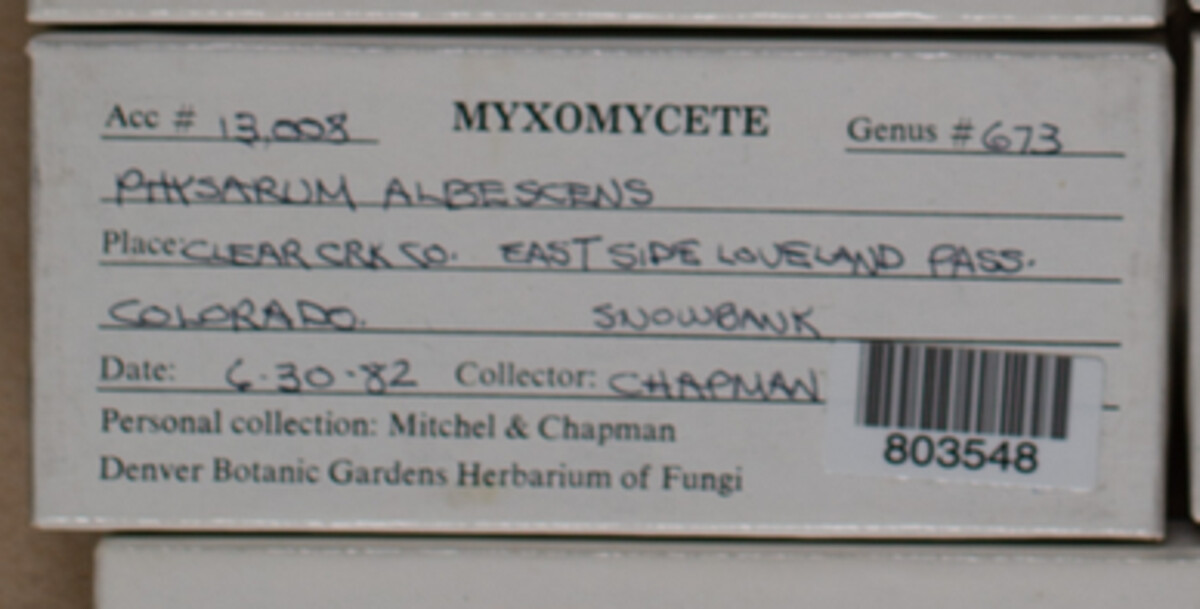 Acc # 13,008 MYXOMYCETE Genus # 673
PHYSARUM ALBESCENS
Place: CLEAR CRK CO. EAST SIDE LOVELAND PASS.
COLORADO. SNOWBANK
Date: 6-30-82 Collector: CHAPMAN
Personal collection: Mitchel & Chapman
Denver Botanic Gardens Herbarium of Fungi
803548